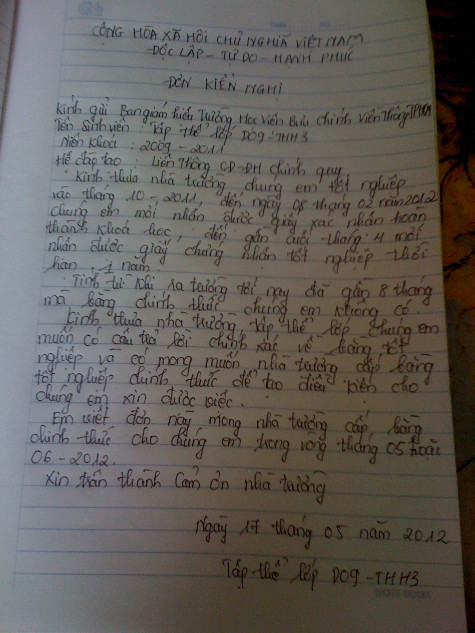 CỘNG HÒA XÃ HỘI CHỦ NGHĨA VIỆT NAM
ĐỘC LẬP - TỰ DO - HẠNH PHÚC
ĐƠN KIẾN NGHỊ
Kính gửi Ban giám hiệu Trường Học Viện Bưu chính Viễn thông TPHCM
Tên sinh viên : Tập thể lớp D09-THH3
Niên khoá : 2009 - 2011
Hệ đào tạo : Liên thông CĐ-ĐH chính quy
Kính thưa nhà trường, chúng em tốt nghiệp
vào tháng 10-2011, đến ngày 08 tháng 02 năm 2012
chúng em mới nhận được giấy xác nhận hoàn
thành khoá học, đến gần cuối tháng 4 mới
nhận được giấy chứng nhận tốt nghiệp thời
hạn 1 năm.
Tính từ khi ra trường tới nay đã gần 8 tháng
mà bằng chính thức chúng em không có.
Kính thưa nhà trường, tập thể lớp chúng em
muốn có câu trả lời chính xác về bằng tốt
nghiệp và có mong muốn nhà trường cấp bằng
tốt nghiệp chính thức để tạo điều kiện cho
chúng em xin được việc.
Em viết đơn này mong nhà trường cấp bằng
chính thức cho chúng em trong vòng tháng 05 hoặc
06-2012.
Xin trân thành cảm ơn nhà trường
Ngày 17 tháng 05 năm 2012
Tập thể lớp D09-THH3
NOTE BOOK